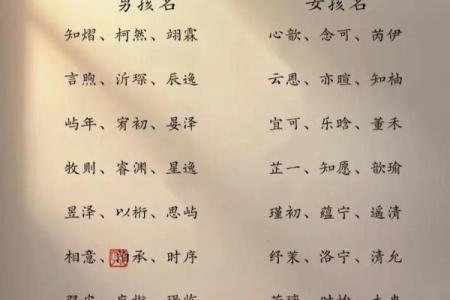 男孩名 女孩名
知熠、柯然、翊霖 心歆、念可、芮伊
言煦、沂琛、辰逸 云恩、亦暄、知柚
屿年、宥初、晏泽 宜可、乐晗、董禾
牧则、睿渊、星逸 芷一、知愿、歆瑜
昱泽、以桁、思屿 瑾初、蕴宁、遥清
相意、承、时序 纾茉、洛宁、清允